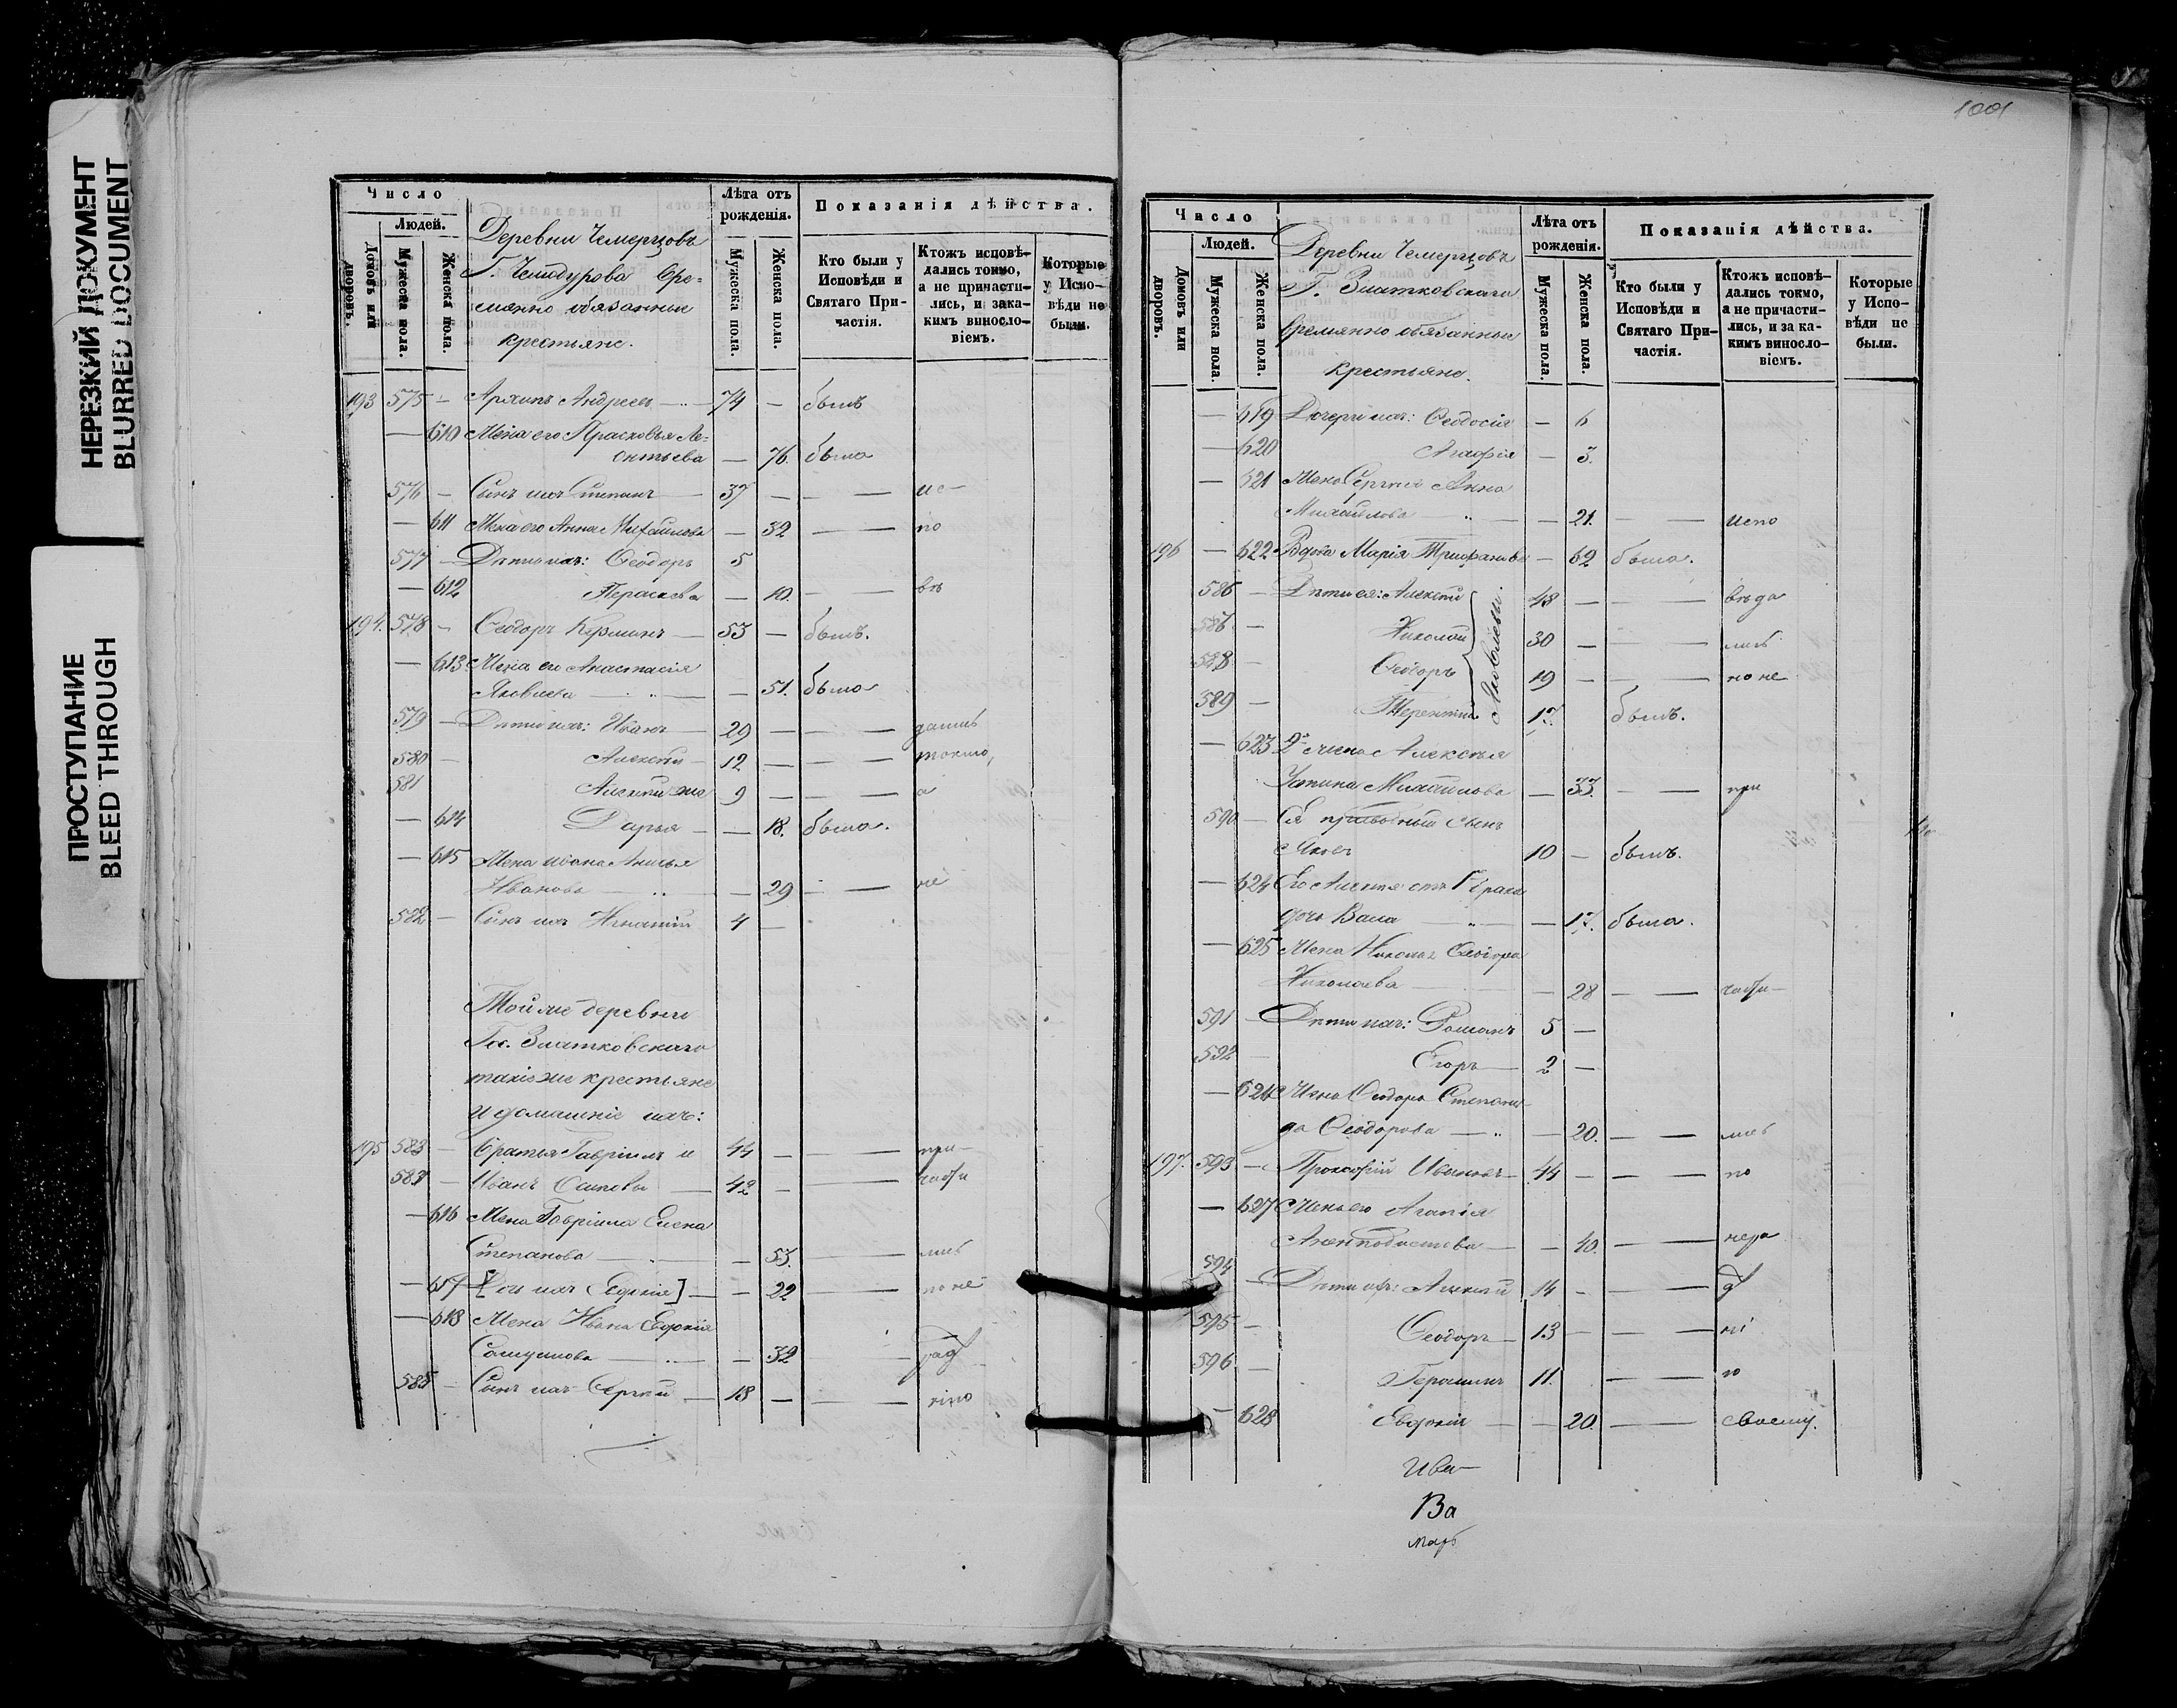 НЕРЕЗКИЙ ДОКУМЕНТ
BLURRED DOCUMENT
ПРОСТУПАНИЕ
BLEED THROUGH
Число
Людей.
Домовъ или дворовъ.
Мужеска пола.
Женска пола.
Деревни Чемерцовъ
Г.
обязанные
крестьяне.
Лѣта отъ рожденія.
Мужеска пола.
Женска пола.
Показанія дѣйства.
Кто были у Исповѣди и Святаго Причастія.
Ктожъ исповѣдались токмо, а не причастились, и закакимъ винословіемъ.
Которые у Исповѣди не были.
193 575 — Архипъ Андреевъ — 74 — былъ
— 610 Жена его Прасковья Ле=
онтьева — 76. была
576 — Сынъ ихъ Степанъ — 37 — — — ис-
— 611 Жена его Анна Михайлова — 32 — — по
577 — Дѣти ихъ: Ѳеодоръ 5
— 612 Параскева — 10. — — вѣ
194. 578 — Ѳеодоръ — 53 — былъ.
— 613 Жена его Анастасія
Яковлева — „ — — 51. была
579 — Дѣти ихъ: Иванъ 29 — — — дались
580 — Алексѣй — 12 — — — токмо,
581 Алексѣй же 9 — — — а
— 614 Дарья — — 18. была.
— 615 Жена Ивана
Иванова — „ — — 29 — — не
582 — Сынъ ихъ Игнатій 4 —
Той же деревни
Гос. Златковскаго
такіе же крестьяне
и домашніе ихъ:
195 583 — Братья Гавріилъ и 44 — — при-
583 — Иванъ Осиповы — 42 — — части
— 616 Жена Гавріила Елена
Степанова — — 53. — лись
— 617 [Дочь ихъ Евдокія] — — 22 — по не
— 618 Жена Ивана Евдокія
Самуилова — „ — — 32 — рад
585 — Сынъ ихъ Сергѣй — 18 — — — нію
1001
Число
Людей.
Домовъ или дворовъ.
Мужеска пола.
Женска пола.
Деревни Чемерцовъ
Г. Златковскаго
временно обязанные
крестьяне.
Лѣта отъ рожденія.
Мужеска пола.
Женска пола.
Показанія дѣйства.
Кто были у Исповѣди и Святаго Причастія.
Ктожъ исповѣдались токмо, а не причастились, и за какимъ винословіемъ.
Которые у Исповѣди не были.
— 619 Дочери ихъ: Ѳеодосія — 6
— 620 Агафія — 3.
— 621 Жена Сергѣя Анна
Михайлова — „ — — 21. — — испо
196 — 622 Вдова Марія — 62 была.
586 — Дѣти ея: Алексѣй 48 — — — вѣда
586. — Николай 30 — — — лись
588 — Ѳеодоръ 19 — — — но не
589 — Терентій 17. былъ.
Яковлевы.
— 623 2я жена Алексѣя
Устина Михайлова — 33. — — при
590 — Ея приводный сынъ
Яковъ 10 — былъ.
— 624 Его Алексѣя отъ 1 брака
дочь — „ — — 17. была.
— 625 Жена Николая Ѳеодора
Николаева — — 28 — — части—
591 — Дѣти ихъ: Романъ 5 —
592 Егоръ — 2 —
— 624 Жена Ѳеодора Степани-
да Ѳеодорова — „ — 20. — — лись
197. 593 — Прокофій Ивановъ — 44 — — по
— 627 Жена его Агапія
— — 40. — — нера
594 — Дѣти ихъ: Алексѣй 14 — — — д
595 — Ѳеодоръ — 13 — — — ні
596 — Герасимъ 11. — — ю
— 628 Евдокія — — 20. — — своему.
Ива—
Ва
марь